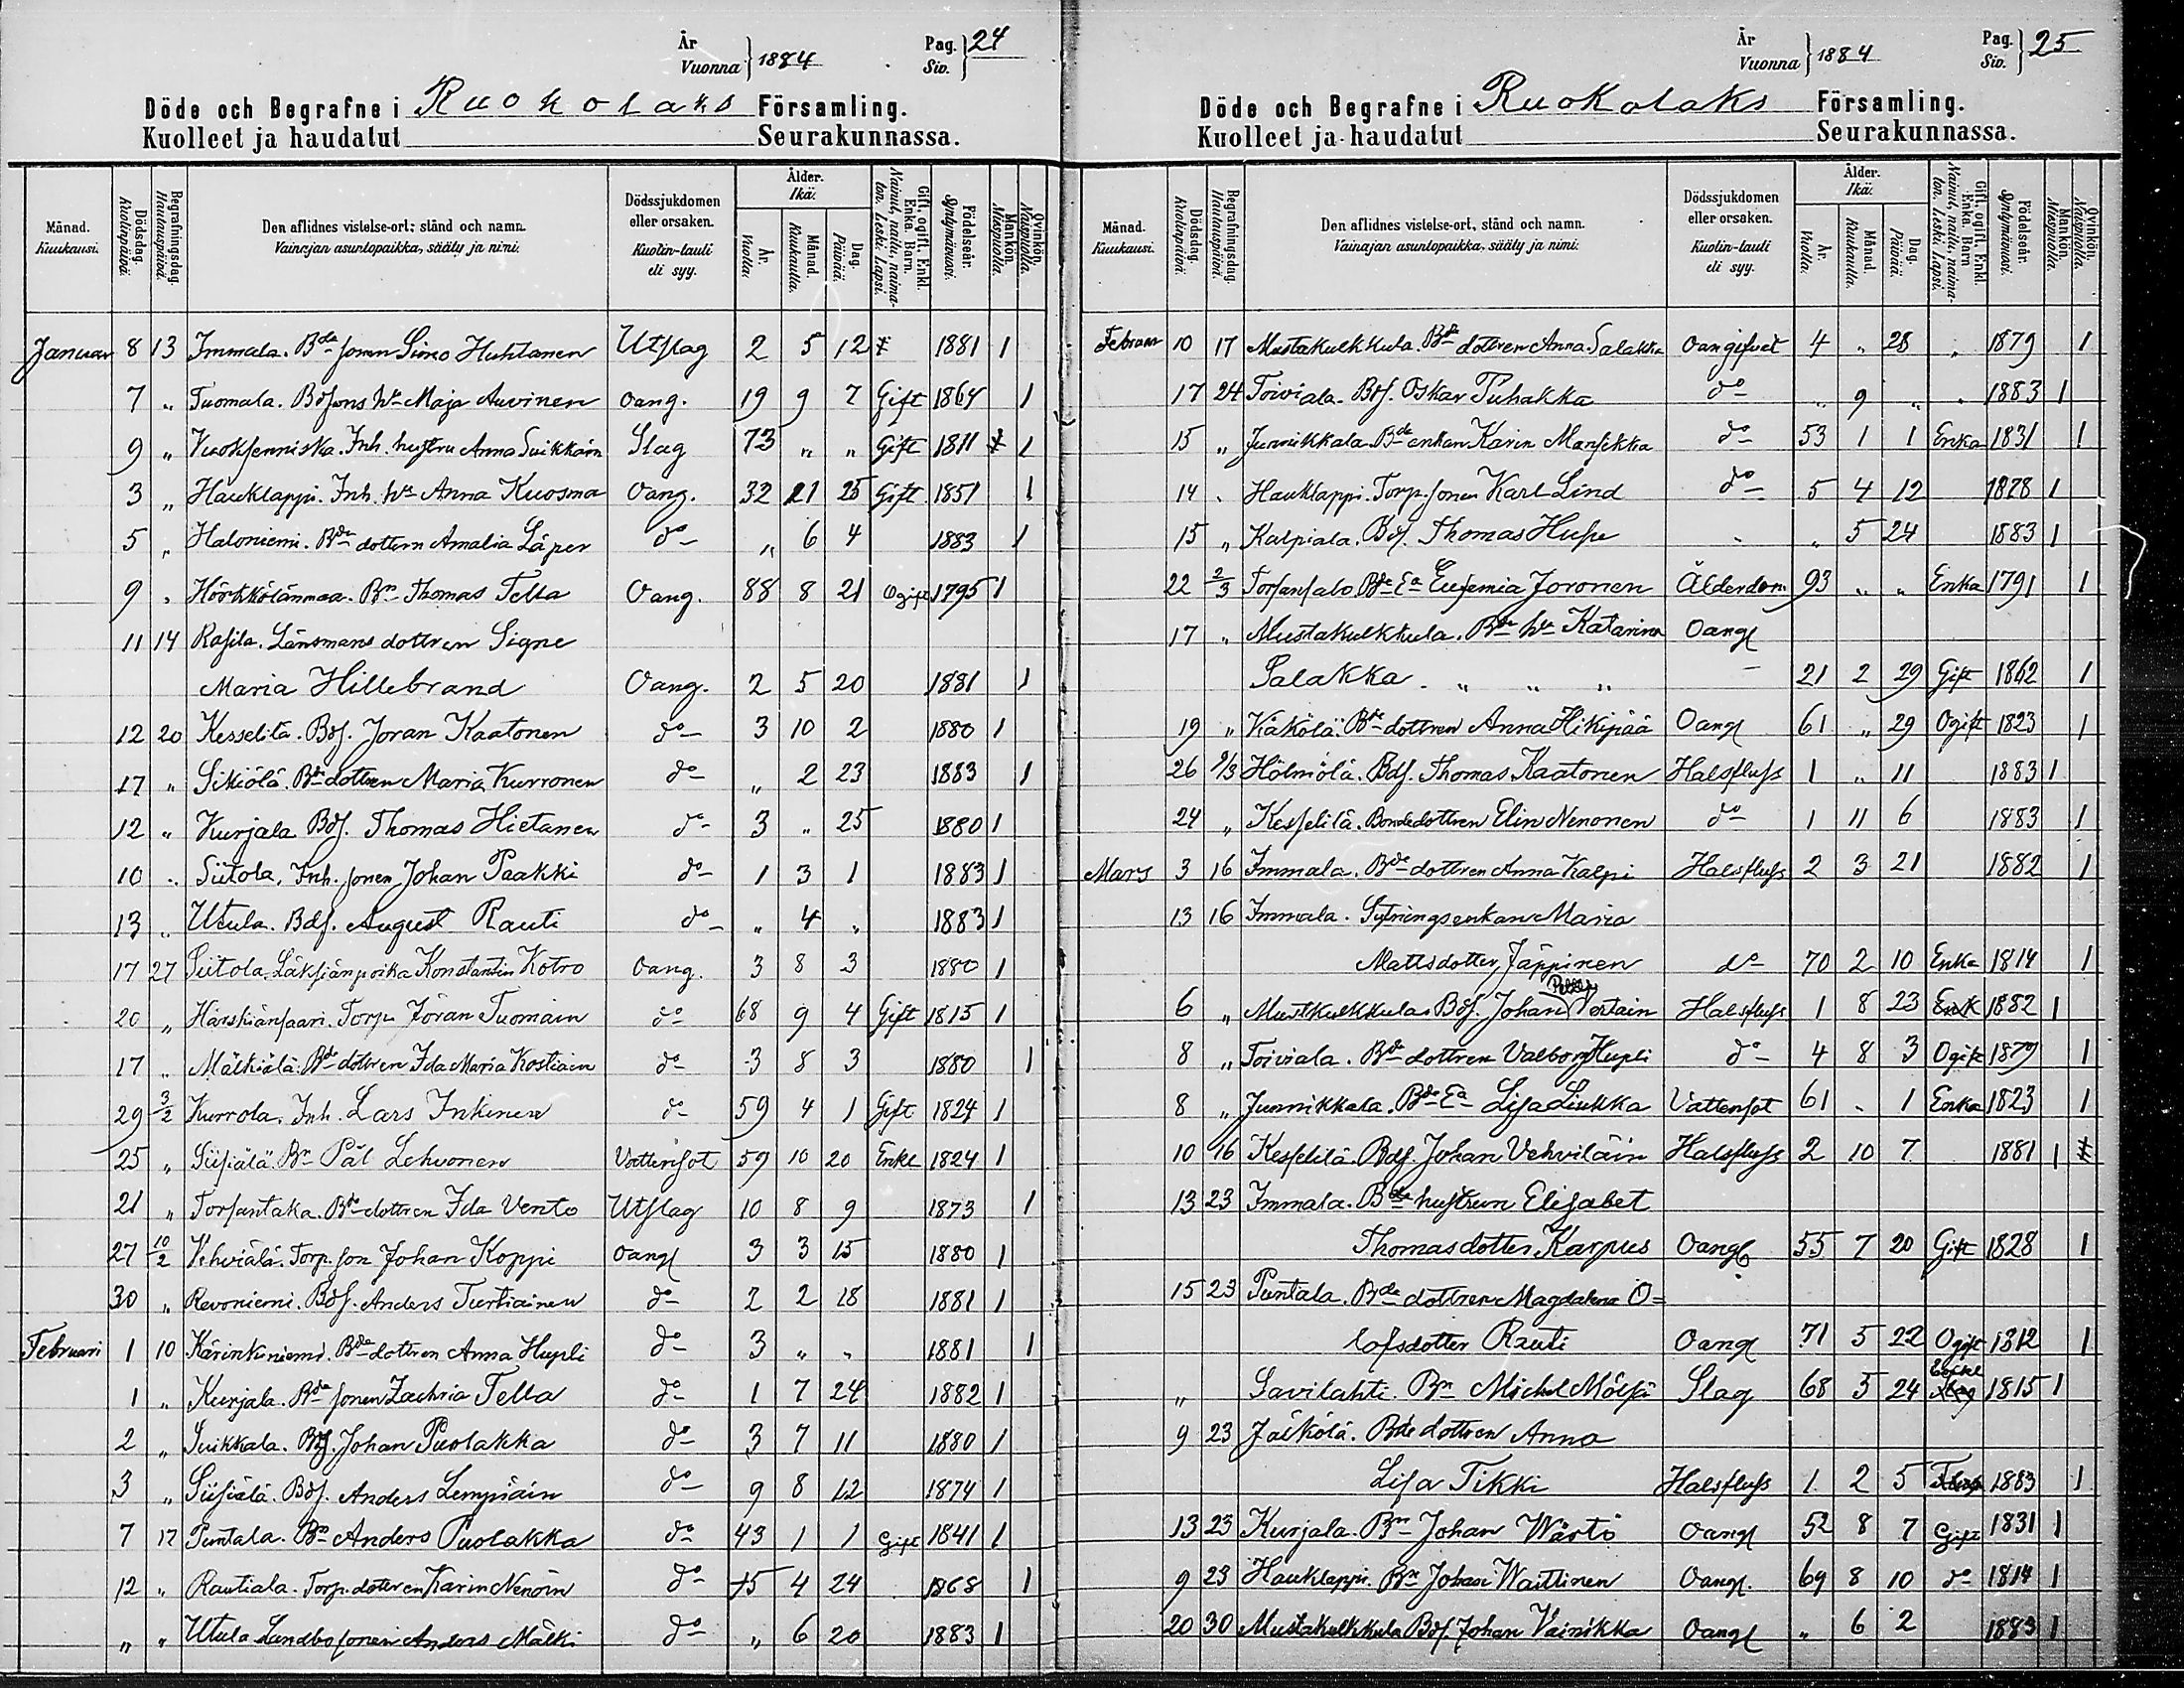 År
Vuonna } 1884
Pag.
Siv. } 24
Döde och Begrafne i Ruokolaks Församling.
Kuolleet ja haudatut Seurakunnassa.
Månad. Kuukausi.
Dödsdag. Kuolinpäivä.
Begrafningsdag. Hautauspäivä.
Den aflidnes vistelse-ort; stånd och namn. Vainajan asuntopaikka, sääty ja nimi.
Dödssjukdomen eller orsaken. Kuolin-tauti eli syy.
Ålder. Ikä.
År. Vuotta.
Månad. Kuukautta.
Dag. Päivää.
Gift, ogift, Enkl. Enka. Barn. Nainut, naitu, naimaton. Leski. Lapsi.
Födelseår. Syntymävuosi.
Mankön. Miespuolia.
Qvinkön. Naispuolia.
Januar 8 13 Immala. Bde sonen Simo Huhtanen Utslag 2 5 12 1881 1
7 " Tuomala. Bdsons h:u Maja Auvinen Oang. 19 9 7 Gift 1864 1
9 " Vuoksenniska. Inh. hustru Anna Suikkarn Slag 73 " " Gift 1811 1
3 " Hauklappi. Inh. h:u Anna Kuosma Oang. 32 11 25 Gift 1851 1
5 " Haloniemi. Bde dottern Amalia Läper do " 6 4 1883 1
9 " Härskiänmaa. Bn Thomas Tella Oang. 88 8 21 Ogift 1795 1
11 14 Rasila. Länsmans dottren Signe
Maria Hillebrand Oang. 2 5 20 1881 1
12 20 Kesselilä. Bds. Jöran Kaatonen do 3 10 2 1880 1
17 " Sikiölä. Bde dottren Maria Kurronen do " 2 23 1883 1
12 " Kurjala Bds. Thomas Hietanen do 3 " 25 1880 1
10 " Siitola. Inh. sonen Johan Paakki do 1 3 1 1883 1
13 " Utula. Bds. August Rauti do " 4 " 1883 1
17 27 Siitola. Läksiänpoika Konstantin Kotro Oang. 3 8 3 1880 1
20 " Härskiänsaari. Torp. Jöran Tuomain do 68 9 4 Gift 1815 1
17 " Mälkiälä. Bde dottren Ida Maria Kostiain do 3 8 3 1880 1
29 3/2 Kurrola. Inh. Lars Inkinen do 59 4 1 Gift 1824 1
25 " Siisiälä. Bn Pål Lehvonen Vattensot 59 10 20 Enkl 1824 1
21 " Torsantaka. Bde dottren Ida Vento Utslag 10 8 9 1873 1
27 10/2 Vehviälä. Torp. son Johan Koppi Oang 3 3 15 1880 1
30 " Revoniemi. Bds. Anders Turtiainen do 2 2 18 1881 1
Februari 1 10 Kärinkiniemi. Bde dottren Anna Hupli do 3 " " 1881 1
1 " Kurjala. Bde sonen Zachria Tella do 1 7 24 1882 1
2 " Suikkala. Bds. Johan Puolakka do 3 7 11 1880 1
3 " Siisiälä. Bds. Anders Lempiäin do 9 8 12 1874 1
7 17 Puntala. Bn Anders Puolakka do 43 1 1 Gift 1841 1
12 " Rautiala. Torp. dottren Karin Nenoin do 15 4 24 1868 1
" " Utula Landbosonen Anders Mälki do " 6 20 1883 1
År
Vuonna } 1884
Pag.
Siv. } 25
Döde och Begrafne i Ruokolaks Församling.
Kuolleet ja haudatut Seurakunnassa.
Månad. Kuukausi.
Dödsdag. Kuolinpäivä.
Begrafningsdag. Hautauspäivä.
Den aflidnes vistelse-ort, stånd och namn. Vainajan asuntopaikka, sääty ja nimi.
Dödssjukdomen eller orsaken. Kuolin-tauti eli syy.
Ålder. Ikä.
År. Vuotta.
Månad. Kuukautta.
Dag. Päivää.
Gift, ogift, Enkl. Enka. Barn Nainut, naitu, naimaton. Leski. Lapsi.
Födelseår. Syntymävuosi.
Mankön. Miespuolia.
Qvinkön. Naispuolia.
Februar 10 17 Mustakulkkula. Bde dottren Anna Salakka Oangifvet 4 " 28 " 1879 1
17 24 Toiviala. Bds. Oskar Puhakka do " 9 " " 1883 1
15 " Junnikkala. Bde enkan Karin Mansikka do 53 1 1 Enka 1831 1
14 " Hauklappi. Torp. sonen Karl Lind do 5 4 12 1878 1
15 " Kalpiala. Bds. Thomas Hupe " " 5 24 1883 1
22 2/3 Torsansalo. Bde Ea Eufemia Joronen Ålderdom 93 " " Enka 1791 1
17 " Mustakulkkula. Bde h:u Katarina Oang
Salakka " " " 21 2 29 Gift 1862 1
19 " Käkölä. Bde dottren Anna Hikipää Oang 61 " 29 Ogift 1823 1
26 9/3 Hölmölä. Bds. Thomas Kaatonen Halsfluss 1 " 11 1883 1
24 " Kesselilä. Bondedottren Elin Nenonen do 1 11 6 1883 1
Mars 3 16 Immala. Bde dottren Anna Kalpi Halsfluss 2 3 21 1882 1
13 16 Immala. Sytningsenkan Maria
Mattsdotter Jäppinen do 70 2 10 Enka 1814 1
6 " Mustkulkkula Bds. Johan Vertain Halsfluss 1 8 23 1882 1
8 " Toiviala. Bde dottren Valborg Hupli do 4 8 3 Ogift 1879 1
8 " Junnikkala. Bde Ea Lisa Liukka Vattensot 61 " 1 Enka 1823 1
10 16 Kesselilä. Bds. Johan Vehviläin Halsfluss 2 10 7 1881 1
13 23 Immala. Bde hustrun Elisabet
Thomasdotter Karpus Oang 55 7 20 Gift 1828 1
15 23 Puntala. Bde dottren Magdalena O=
lofsdotter Rauti Oang 71 5 22 Ogift 1812 1
" Savilahti. Bn Michel Mölsä Slag 68 5 24 Enkl 1815 1
9 23 Jäikölä. Bde dottren Anna
Lisa Tikki Halsfluss 1 2 5 1883 1
13 23 Kurjala. Bn Johan Wärtö Oang 52 8 7 Gift 1831 1
9 23 Hauklappi. Bn Johan Waittinen Oang. 69 8 10 do 1814 1
20 30 Mustakulkkula Bds. Johan Vainikka Oang " 6 2 1883 1